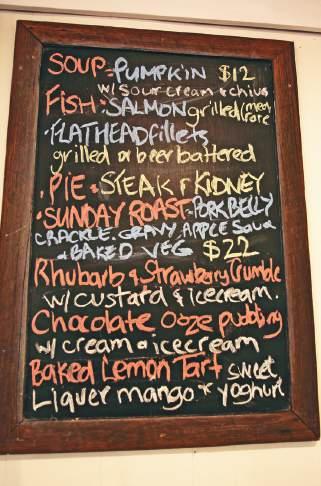 SOUP-PUMPKIN $12
w/ SOUR CREAM & CHIVE
FISH • SALMON grilled (med/rare
•FLATHEAD fillets
grilled or beer battered
•PIE • STEAK & KIDNEY
•SUNDAY ROAST-PORK BELLY
CRACKLE. GRAVY APPLE Sauce
& BAKED VEG $22
Rhubarb & Strawberry Crumble
w/ custard & icecream.
Chocolate Ooze pudding
w/ cream & icecream
Baked Lemon Tart sweet
Liquer mango & yoghurt